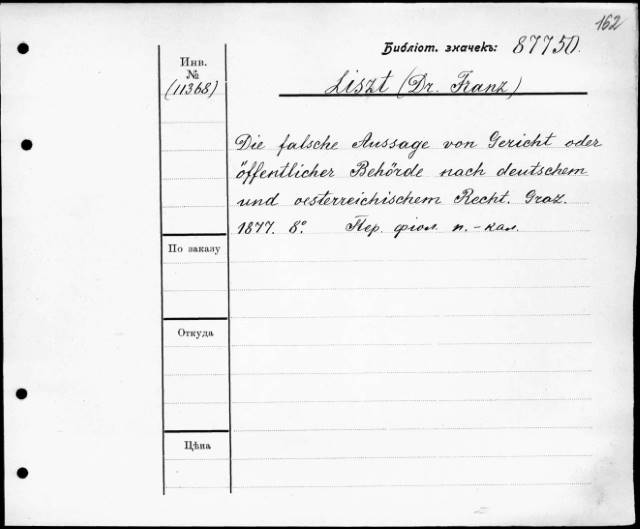 162
Библіот. значекъ: 87750.
Инв.
№
(11368)
Liszt (Dr. Franz)
Die falsche Aussage von Gericht oder
öffentlicher Behörde nach deutschem
und oesterreichischem Recht. Graz.
1877. 8º. Пер. фіол. п.-кал.
По заказу
Откуда
Цѣна